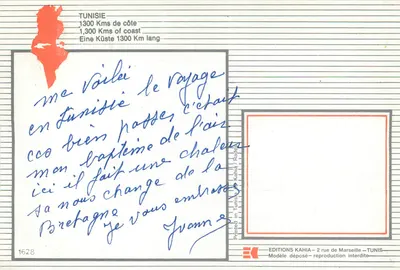 TUNISIE
1300 Kms de côte
1,300 Kms of coast
Eine Küste 1300 Km lang
me voilà
en Tunisie le voyage
cco bien passer c'était
mon baptême de l'air
ici il fait une chaleur
sa nous change de la
Bretagne
je vous embrasse
Yvonne
1628
EDITIONS KAHIA - 2 rue de Marseille - TUNIS
Modèle déposé - reproduction interdite